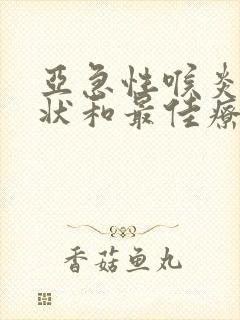 亞急性喉炎
狀和最佳療
香菇鱼丸